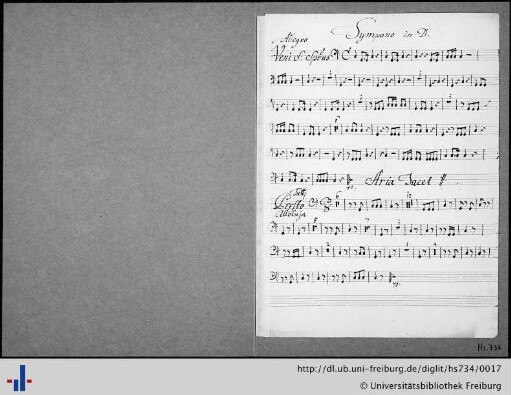 Tympano in D.
Allegro
Veni S. Sptus
Aria Tacet
Tutti
Presto
Alleluja
Hs. 734
http://dl.ub.uni-freiburg.de/diglit/hs734/0017
© Universitätsbibliothek Freiburg